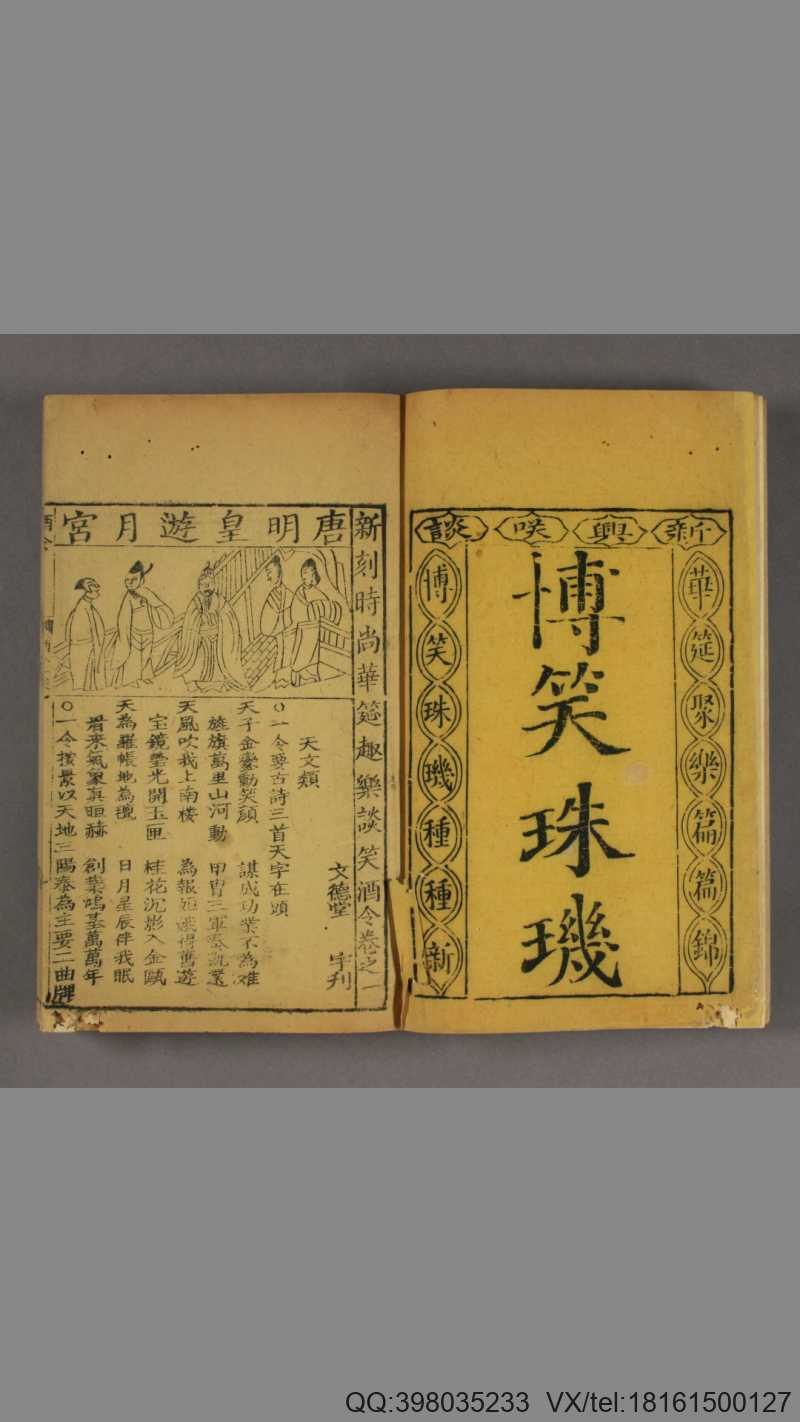 新興咲談
華筵聚樂篇篇錦
博笑珠璣
博笑珠璣種種新
新刻時尚華筵趣樂談笑酒令卷之一
唐明皇遊月宮
文德堂 刊
天文類
○一令要古詩三首天字在頭
天子金鑾動笑顏 謀成功業不為难
旌旗萬里山河動 甲胄三軍奏凱還
天風吹我上南楼 為報 得舊遊
宝鏡瑩光開玉匣 桂花沉影入金甌
天為羅帳地為氊 日月星辰伴我眠
看来氣象真暄赫 創業鴻基萬萬年
○一令按景以天地三陽泰為主要二曲牌
QQ:398035233 VX/tel:18161500127